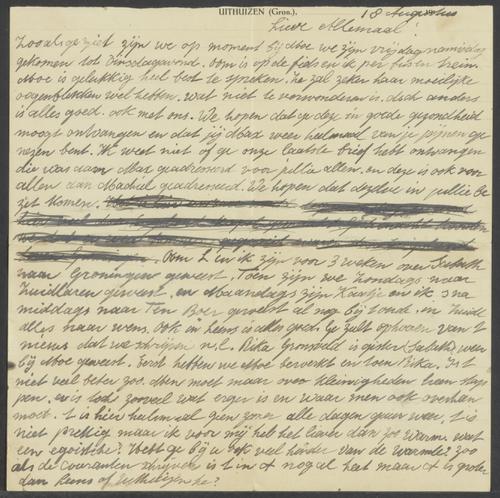 UITHUIZEN (Gron.),
18 Augustus
Lieve Allemaal!
Zooals ge ziet zijn we op moment bij Moe we zijn vrijdagnamiddag
gekomen tot Dinsdagavond. Oom is op de fiets en ik per trein
Moe is gelukkig heel best te spreken. Ze zal zeker haar moeilijke
oogenblikken wel hebben, wat niet te verwonderen is, doch anders
is alles goed. ook met ons. We hopen dat ge deze in goede gezondheid
moogt ontvangen en dat jij Max weer heelemaal van je pijnen ge-
nezen bent. Ik weet niet of ge onze laatste brief hebt ontvangen
die was aan Max geadresseerd voor jullie allen. en deze is ook voor
allen aan Machiel geadresseerd. We hopen dat dezelve in jullie be-
zit komen.
Oom L en ik zijn voor 3 weken over
naar Groningen geweest. Toen zijn we Zondags naar
Zuidlaren geweest. en Maandags zijn en ik s na
middags naar Ten Boer geweest al nog bij toerde. en vindt
alles naar wens. Ook in is alles goed. Ge zult ophooren van 't
nieuws dat we schrijven n.l. Rika is gister was
bij Moe geweest. Eerst hebben we Moe bewerkt en toen Rika. Is 't
niet veel beter zoo. Men moet maar over kleinigheden heen stap-
pen. er is toch zooveel wat erger is en waar men ook overheen
moet. 't is hier heelemaal geen zomer alle dagen guur weer, 't is
niet prettig maar ik voor mij heb het liever dan zoo warm. wat
een egoïste hè? Hebt ge bij u ook veel hinder van de warmte? Zoo
als de couranten schrijven is 't in nogal heet maar is groter
dan of hè?